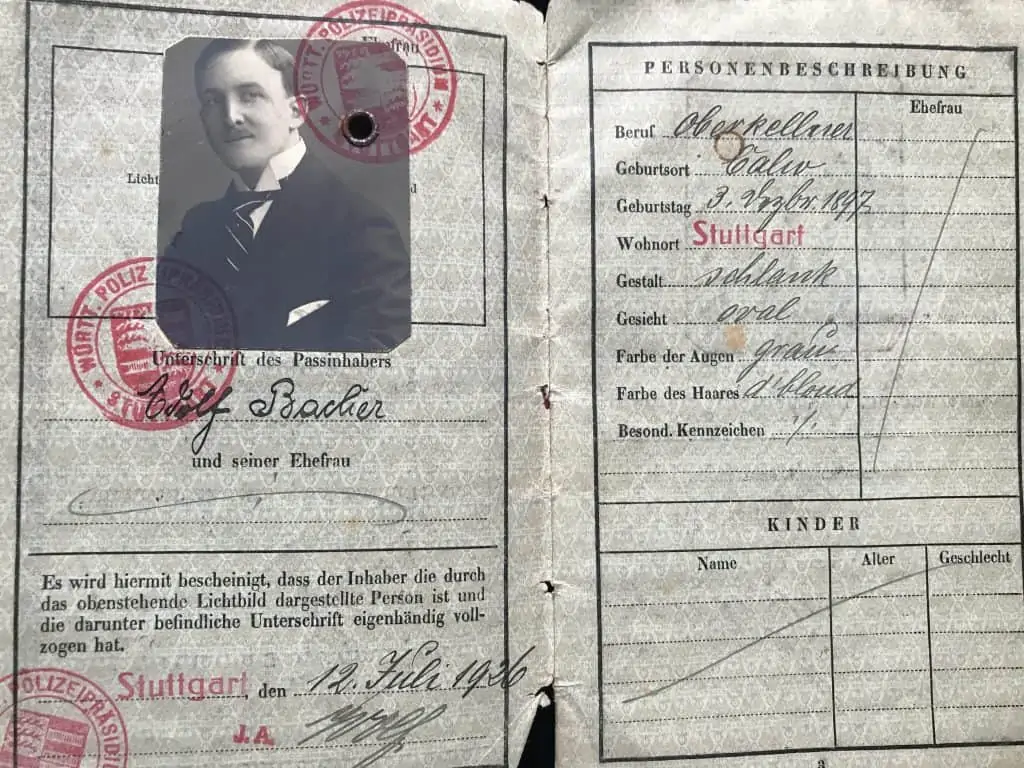 Ehefrau
WÜRTT. POLIZEIPRÄSIDIUM
* STUTTGART *
Licht
WÜRTT. POLIZEIPRÄSIDIUM
* STUTTGART *
Unterschrift des Passinhabers
Adolf Bacher
und seiner Ehefrau
Es wird hiermit bescheinigt, dass der Inhaber die durch
das obenstehende Lichtbild dargestellte Person ist und
die darunter befindliche Unterschrift eigenhändig voll-
zogen hat.
POLIZEIPRÄSIDI
Stuttgart, den 12. Juli 1926
J.A.
PERSONENBESCHREIBUNG
Ehefrau
Beruf Oberkellner
Geburtsort Calw
Geburtstag 3. Dezbr. 1897
Wohnort Stuttgart
Gestalt schlank
Gesicht oval
Farbe der Augen grau
Farbe des Haares d'blond
Besond. Kennzeichen ·/.
KINDER
Name Alter Geschlecht